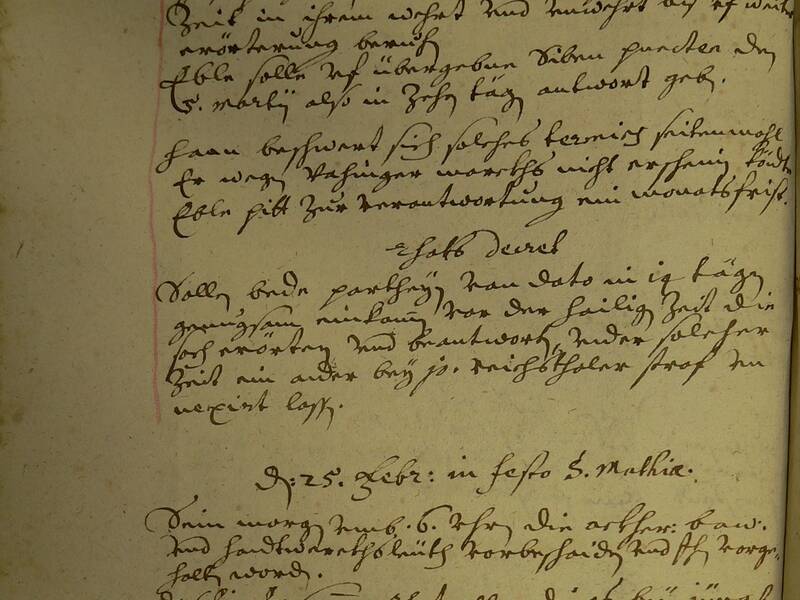 Zeit in ihrem wehrt und unwehrt bis uf weitere
erörterung beruh
Eble solle uf übergebne Siben puncten den
5. martij also in Zehen täg antwort geben.
haan beschwert sich solches termins seitenmahl
Er wegen Vahinger marckhs nicht erscheinen köndte
Eble pitt Zur verantwortung ein monatsfrist.
Raths decret
Sollen bede partheyen von dato in 14 tägen
genugsam einkomen vor der heilig Zeit die
sach erörtern und beantworten, under solcher
Zeit ein ander bey 10. reichsthaler straf un
vexirt lassen.
d. 25. Febr: in festo S. Mathiæ.
Sein morgen umb. 6. Uhren die ackher: baw:
und handtwerckhsleüth vorbescheiden und Ihnen vorge-
halten worden.